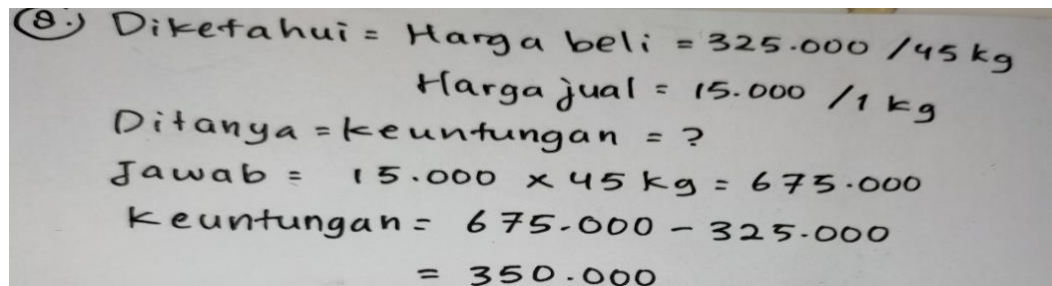 8.) Diketahui = Harga beli = 325.000 /45 kg
Harga jual = 15.000 /1 kg
Ditanya = keuntungan = ?
Jawab = 15.000 x 45 kg = 675.000
Keuntungan = 675.000 - 325.000
= 350.000